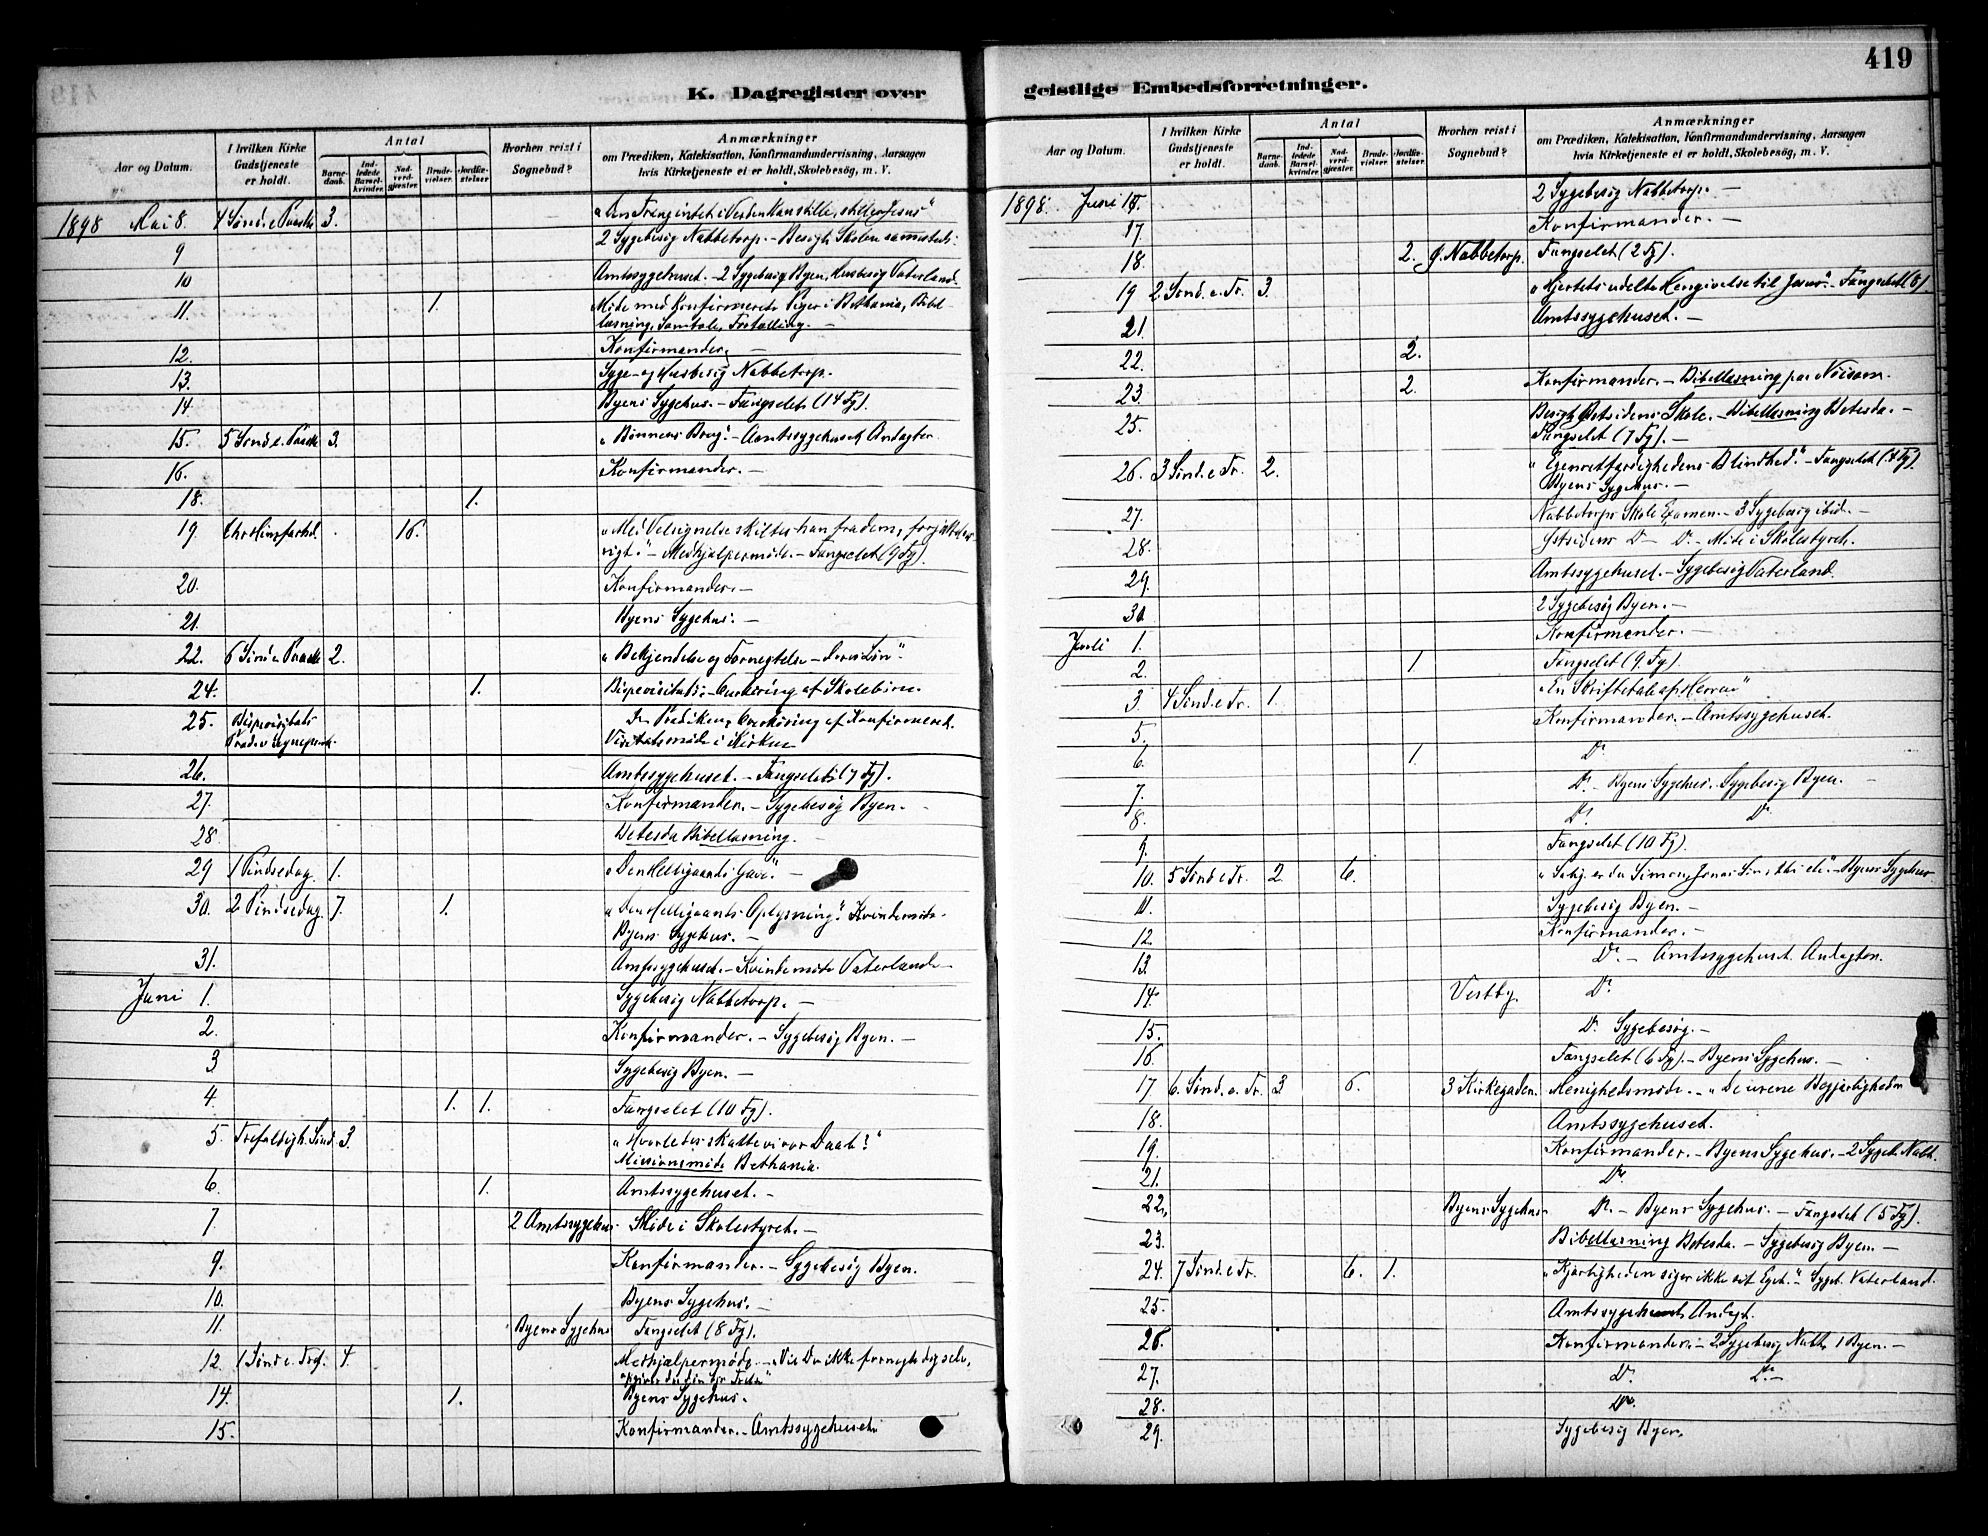 419
K. Dagregister over
geistlige Embedsforretninger.
Aar og Datum.
I hvilken Kirke Gudstjeneste er holdt.
Antal
Barnedaab.
Indledede Barselkvinder.
Nadverdgjæster.
Brudevielser.
Jordfæstelser.
Hvorhen reist i Sognebud?
Anmærkninger
om Prædiken, Katekisation, Konfirmandundervisning, Aarsagen
hvis Kirketjeneste ei er holdt, Skolebesög, m. V.
1898 Mai 8. 4 Sönd e Paaske 3. skiller Jesus"
9 2 Sygebesög Nabbetorp. - Besögt Skolen sammesteds.
10 Amtssygehuset. - 2 Sygebesög Byen, Husbesög Vaterland.
11. 1. Möde med Konfirmerede Piger i Bethania, Bibel-
læsning, Samtale, Fortælling. -
12. Konfirmander. -
13. Syge- og Husbesög Nabbetorp.
14. Byens Sygehus. - Fængselet (14 Fg).
15. 5 Sönd e. Paaske 3. "Bönnens Brug". - Amtssygehuset Andagter.
16. Konfirmander. -
18. 1.
19. Chr Himfartsd. 16. "Med Velsignelse skiltes han fra dem,
- Medhjælpermöde. - Fængselet (9 Fg).
20. Konfirmander. -
21. Byens Sygehus. -
22. 6 Sönd e Paaske 2. "Bekjendelse og Fornegtelse -
24. 1. Bispevisitats. - Overhöring af Skolebörn.
25. Bispevisitats Prædiken, Overhöring af Konfirmerede.
Visitatsmöde i Kirken
26. Amtssygehuset. - Fængselet (7 Fg).
27. Konfirmander. - Sygebesög Byen. -
28. Betesda Bibellæsning. -
29 1 Pindsedag. 1. "Den Helligaands Gave". -
30. 2 Pindsedag. 7. 1. "Den Helligaands Oplysning". Kvindemöde.
Byens Sygehus. -
31. Amtssygehuset. - Kvindemöde Vaterland -
Juni 1. Sygebesög Nabbetorp. -
2. Konfirmander. - Sygebesög Byen. -
3 Sygebesög Byen. -
4. 1. 1. Fængselet (10 Fg).
5. Trefoldigh. Sönd. 3. "Hvorledes skatte vi vor Daab?"
Missionsmöde Bethania.
6. 1. Amtssygehuset. -
7 2 Amtssygehus Möde i Skolestyret. -
9. Konfirmander. - Sygebesög Byen.
10. Byens Sygehus. -
11. Byens Sygehus Fængselet (8 Fg).
12. 1 Sönd e. Tref. 4. Medhjælpermöde. - "Vil Du ikke fornegte dig selv,
14. 1. Byens Sygehus.
15. Konfirmander. - Amtssygehuset
Aar og Datum.
I hvilken Kirke Gudstjeneste er holdt.
Antal
Barnedaab.
Indledede Barselkvinder.
Nadverdgjæster.
Brudevielser.
Jordfæstelser.
Hvorhen reist i Sognebud?
Anmærkninger
om Prædiken, Katekisation, Konfirmandundervisning, Aarsagen
hvis Kirketjeneste ei er holdt, Skolebesög, m. V.
1898. Juni 2 Sygebesög Nabbetorp. -
17. Konfirmander. -
18. 2. Nabbetorp. Fængselet (2 Fg).
19 2 Sönd. e. Tr. 3. "Hjertets udelte Hengivelse til Jesus". - Fængselet (8)
21 Amtssygehuset. -
22. 2.
23. 2. Konfirmander. - Bibellæsning paa
25. Skole. - Bibellæsning Betesda. -
Fængselet (7 Fg). -
26. 3 Sönd. e Tr. 2. "Egenretfærdighedens Blindhed". - Fængselet (4 Fg).
Byens Sygehus. -
27. Nabbetorps Skole Examen. - 3 Sygebesög ibid. -
28. Östsidens Do Do. - Möde i Skolestyret.
29. Amtssygehuset. - Sygebesög Vaterland.
30 2 Sygebesög Byen. -
Juli 1. Konfirmander. -
2. 1 Fængselet (9 Fg).
3. 4 Sönd. e Tr. 1. "En Skriftetale af Herren"
5. Konfirmander. - Amtssygehuset.
6. 1. Do
7. Do. - Byens Sygehus. Sygebesög Byen. -
8. Do. Do.
9. Fængselet (10 Fg).
10. 5 Sönd e Tr. 2. 6. er du Simon, Jonas Sön, - Byens Sygehus.
11. Sygebesög Byen. -
12. Konfirmander. -
13. Do. - Amtssygehuset. Andagten.
14. Vestby. Do
15. Do Sygebesög. -
16. Fængselet (6 Fg). - Byens Sygehus. -
17 6. Sönd. e. Tr. 3. 6. 3 Kirkegaden. Menighedsmöde. - "De urene Begjærligheder
18. Amtssygehuset.
19. Konfirmander. - Byens Sygehus. - 2 Sygeb. Nabb.
21. Do
22. Byens Sygehus Do. - Byens Sygehus. - Fængselet (5 Fg).
23. Bibellæsning Betesda. - Sygebesög Byen. -
24. 7 Sönd. e Tr. 6. 1. "Kjærligheden söger ikke sit Eget". - Sygeb. Vaterland.
25. Amtssygehuset Andagt.
26. Konfirmander. - 2 Sygebesög Nabb, 1 Byen. -
27. Do Do. -
28. Do.
29. Sygebesög Byen.